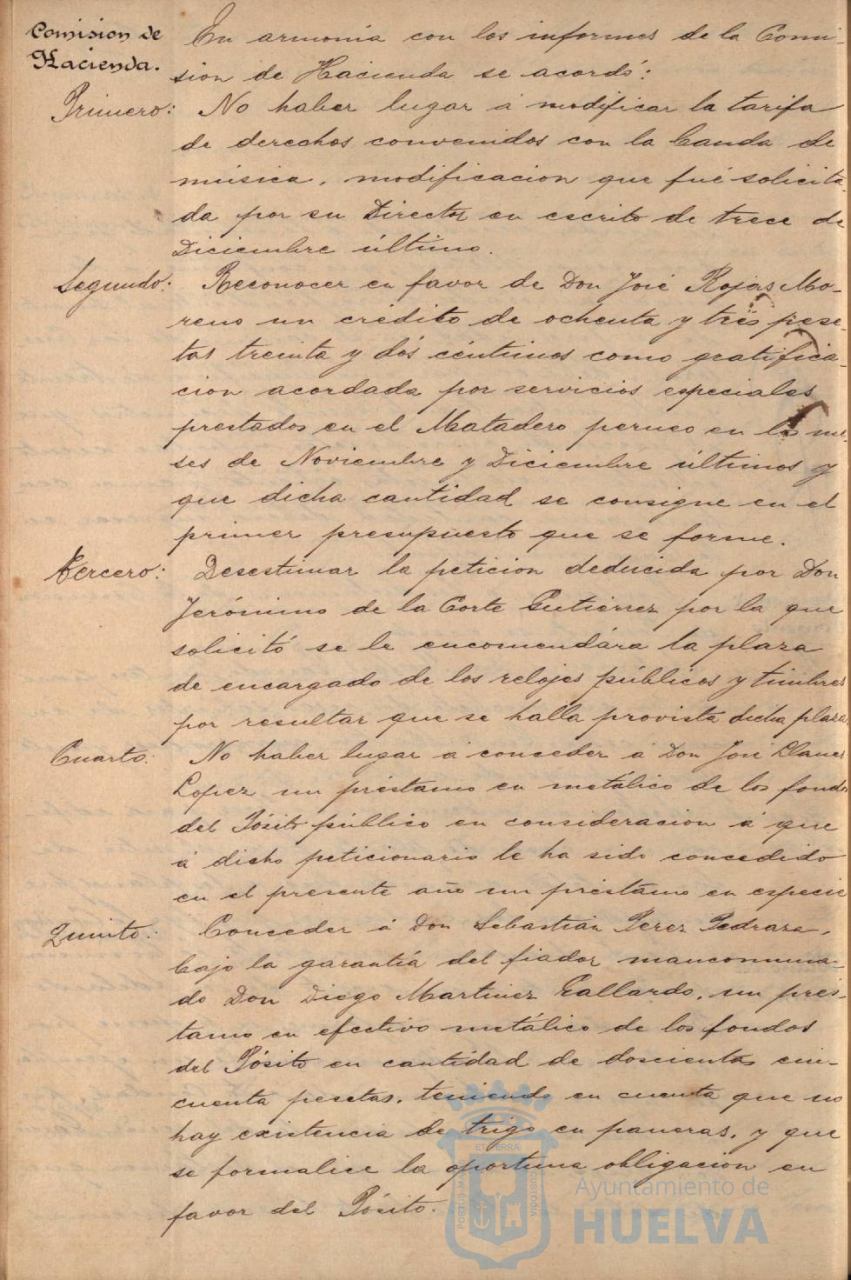 Comision de
Hacienda.
En armonía con los informes de la Comi-
sion de Hacienda se acordó:
Primero: No haber lugar á modificar la tarifa
de derechos convenidos con la banda de
música, modificacion que fué solicita-
da por su Director en escrito de trece de
Diciembre último.
Segundo: Reconocer en favor de Don José Rojas Mo-
reno un crédito de ochenta y tres pese-
tas treinta y dós céntimos como gratifica-
cion acordada por servicios especiales
prestados en el Matadero perneo en los me-
ses de Noviembre y Diciembre últimos y
que dicha cantidad se consigne en el
primer presupuesto que se forme.
Tercero: Desestimar la peticion deducida por Don
Jerónimo de la Corte Gutierrez por la que
solicitó se le encomendára la plaza
de encargado de los relojes públicos y timbres
por resultar que se halla provista dicha plaza.
Cuarto: No haber lugar á conceder á Don José Llanes
Lopez un préstamo en metálico de los fondos
del Pósito público en consideracion á que
á dicho peticionario le ha sido concedido
en el presente año un préstamo en especie
Quinto: Conceder á Don Sebastián Perez Pedraza,
bajo la garantía del fiador mancomuna-
do Don Diego Martinez Gallardo, un prés-
tamo en efectivo metálico de los fondos
del Pósito en cantidad de doscientas cin-
cuenta pesetas, teniendo en cuenta que no
hay existencia de trigo en paneras, y que
se formalice la oportuna obligacion en
favor del Pósito.
Ayuntamiento de
HUELVA